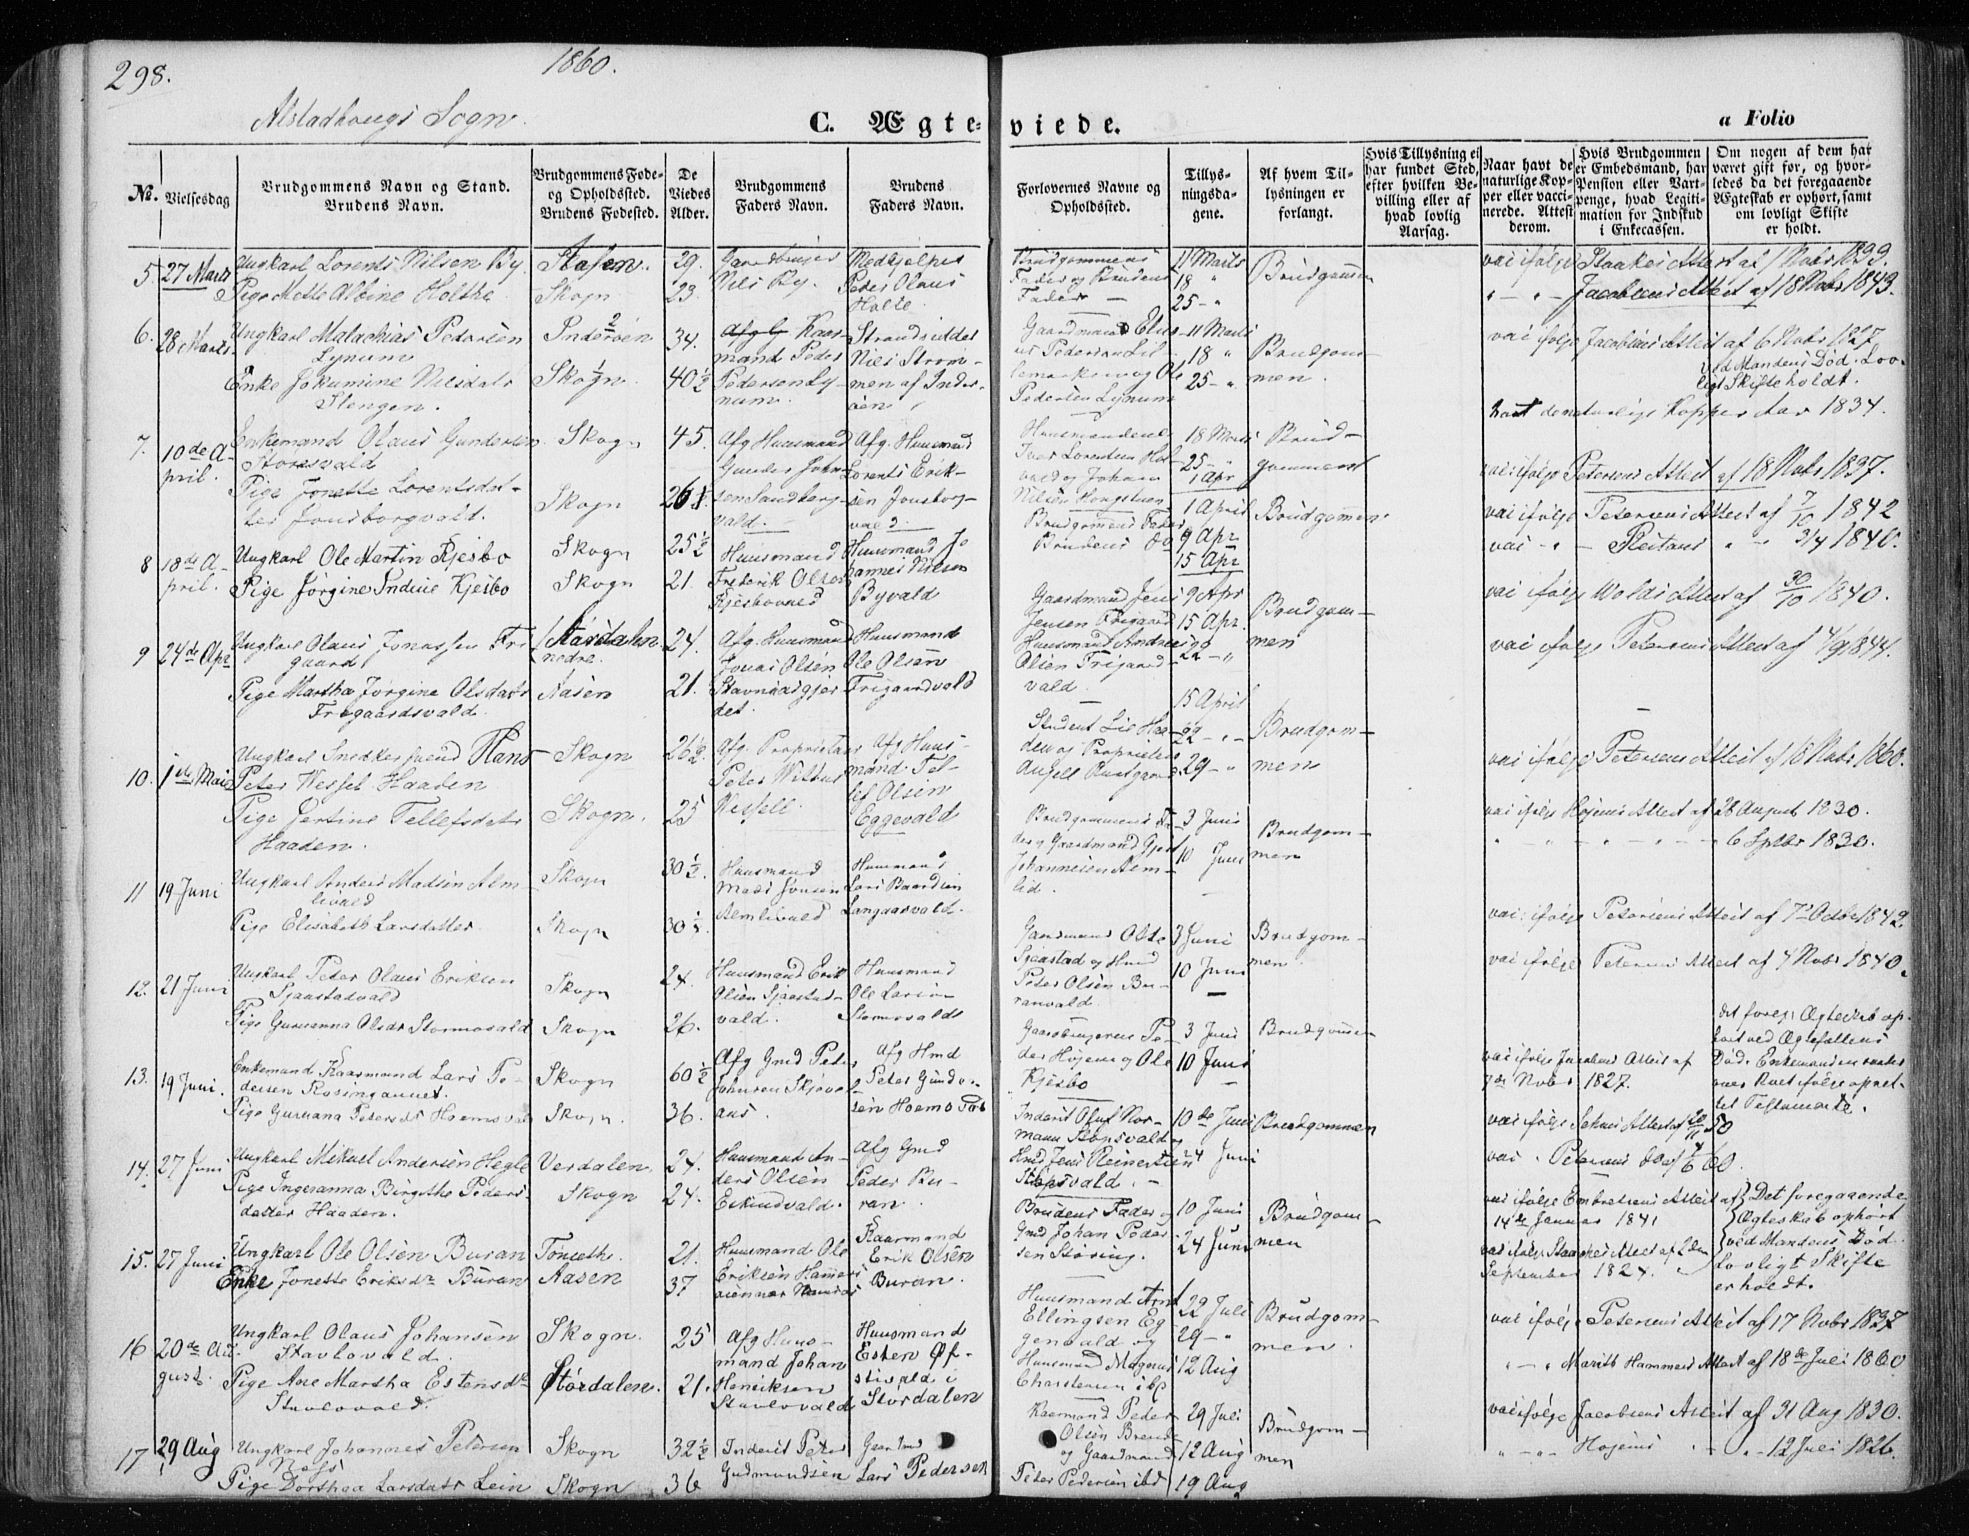 298.
1860.
Alstadhougs Sogn.
C. Ægteviede.
a Folio
No.
Vielsesdag
Brudgommens Navn og Stand.
Brudens Navn.
Brudgommens Føde-
og Opholdssted.
Brudens Fødested.
De
Viedes
Alder.
Brudgommens
Faders Navn.
Brudens
Faders Navn.
Forlovernes Navne og
Opholdssted.
Tillys-
ningsda-
gene.
Af hvem Til-
lysningen er
forlangt.
Hvis Tillysning ei
har fundet Sted,
efter hvilken Be-
villing eller af
hvad lovlig
Aarsag.
Naar havt de
naturlige Kop-
per eller vacci-
nerede. Attest
derom.
Hvis Brudgommen
er Embedsmand, har
Pension eller Vart-
penge, hvad Legiti-
mation for Indskud
i Enkecassen.
Om nogen af dem har
været gift før, og hvor-
ledes da det foregaaende
Ægteskab er ophørt, samt
om lovligt Skifte
er holdt.
5. 27 Marts
Ungkarl Lorents Nilsen By.
Pige Mette Albine Holthe
Aasen.
Skogn
29.
23.
Nils By.
Medhjelper
Peder Olaus
Holte
Brudgommens
Fader og Brudens
Fader
11 Marts
18 "
25 - "
Brudgommen
vac ifølge Staakes Attest af 1 Nobr
" - " - Jacobsens Attest af 18 Nobr 1843.
6. 28 Marts
Ungkarl Malachias Pedersen
Lynum
Enke Jokumine Nilsdatr
Stengen.
Inderøen
Skogn.
34.
40 1/2
Kaar-
mand Peder
Pedersen Ly-
num.
Strandsidder
Niels Strøm-
men af Inder-
øen
Gaardmand
Pedersen Lil-
lemarken og Ole
Pedersen Lynum
11 Marts
18 "
25 - "
Brudgom-
men.
vac ifølge Jacobsens Attest af 6 Nobr 1827
ved Mandens Død. Lov-
ligt Skifte holdt.
7. 10de A-
pril.
Enkemand Olaus Gundersen
Storsvald
Pige Jonette Lorentsdat-
ter Jonsborgvald.
Skogn
Skogn
45.
Afg Huusmand
Gunder John-
sen Sandberg-
vald.
Afg. Huusmand
Lorents Erik-
sen Jonsborg-
vald.
Huusmændene
Iver Lorentsen Hol-
vald og Johan
Nilsen
18 Marts
25 -
1 Apr
Brud-
gommen
havt de naturlige Kopper Aar 1834.
vac ifølge Petersens Attest af 18 Nobr 1837.
8 18de A-
pril.
Ungkarl Ole Martin Kjesbo
Pige Jørgine Indine Kjesbo
Skogn
Skogn
25 1/2
21.
Huusmand
Frederik Olsen
Huusmand Jo
hannes Nilsen
Byvald
Brudgommens Fader
Brudens do
1 April
9 Apr
15 Apr
Brudgommen
vac ifølge Petersens Attest af 7/10 1842
vac " - Pleitans " - 3/4 1840.
9 24de Apr
Ungkarl Olaus Jonassen Fri-
gaard
Pige Martha Jørgine Olsdatr
Frigaardsvald.
Størdalen
nedre.
Aasen
24.
21.
Afg. Huusmand
Jonas Olsen
Stavnaasgjer
det.
Huusmand
Ole Olsen
Frigaardvald
Gaardmand Jens
Jensen Frigaard
Huusmand Andreas
Olsen Frigaard
vald.
9 Apr
15 Apr.
22 - "
Brudgom-
men
vac ifølge Wolds Attest af 30/10 1840.
vac ifølge Petersens Attest af 4/9 1844.
10. 1ste Mai
Ungkarl Snedkersvend Hans
Peter Wessel Haaden
Pige Jertine Tellefsdatr
Haaden.
Skogn
Skogn.
26 1/2
25
Afg. Proprietær
Peter Wittus
Wessell
Afg Huus-
mand Tel-
lef Olsen
Eggevald
Student Lie Haa-
den og Proprietær
Angell Rustgaard.
15 April
22 - " -
29 - "
Brudgom-
men
vac ifølge Petersens Attest af 18 Nobr 1860.
11 19 Juni
Ungkarl Anders Madsen Alm-
livald
Pige Elisabeth Larsdatter
Skogn
Skogn
30 1/2
Huusmand
Mads Jonsen
Almlivald
Huusmand
Lars Baardsen
Langaasvald.
Brudgommens Fa-
der og Gaardmand
Johannesen Alm-
lid.
3 Juni
10 Juni
Brudgom-
men
vac ifølge Højems Attest af 28 August 1830.
6 Septbr 1830.
12. 21 Juni
Ungkarl Peter Olaus Eriksen
Sjaastadvald
Pige Gurianna Olsdr Stormovald
Skogn
Skogn
24.
26.
Huusmand Erik
Olsen Sjaastad-
vald.
Huusmand
Ole Larsen
Stormovald
Gaardmand Ole
Sjaastad og Hmd
Peter Olsen Bu-
ranvald.
3 Juni
10 Juni
Brudgom-
men.
vac ifølge Petersens Attest af 7de Octbr 1842.
vac ifølge Petersens Attest af 4 Nobr 1840.
13. 19 Juni.
Enkemand Kaarmand Lars Pe-
dersen Rosingaunet.
Skogn
Skogn.
60 1/2
36.
Afg Gmd Peder
Johnsen Skjeval-
aas.
Afg Hmd
Peter Gunder-
sen Hoemo
Gaardbrugerne Pe-
der Højem og Ole
Kjesbo
3 Juni
10 Juni
Brudgommen
vac ifølge Jacobsens Attest af
7de Nobr 1827.
det foreg. Ægteskab op-
hørt ved Ægtefællens
Død. Enkemanden
ifølge opret-
tet Testamente.
14. 27 Juni
Ungkarl Mikael Andersen Hegle
Pige Ingeranna Birgithe Peders-
datter Haaden.
Verdalen.
Skogn
24.
24.
Huusmand An-
ders Olsen
Eklundvald.
Afg Gmd
Peder Bu-
ran.
Inderst Oluf Nor-
mann Stopsvald
Hmd Jens Reinertsen
Stopsvald.
10de Juni
24 Juni
Brudgommen
vac ifølge Attest af 20/11 50
vac " Petersens do af 4/6 60.
15. 27 Juni
Ungkarl Ole Olsen Buran
Enke Jonette Eriksdr Buran
Aasen
21.
37
Huusmand Ole
Eriksen Hammers
Kaarmand
Erik Olsen
Buran.
Brudens Fader og
Gmd Johan Peder-
sen Støring.
10 Juni
24 Juni
Brudgom-
men
vac ifølge Embretsens Attest af
14de Januar 1841
vac ifølge Staakes Attest af 2den
September 1824.
Det foregaaende
Ægteskab ophørt
ved Mandens Død.
Lovligt Skifte
er holdt.
16 20de Au-
gust.
Ungkarl Olaus Johansen
Stavlovald.
Pige Ane Martha Estensdr
Stavlovald.
Skogn.
Størdalen.
25
21.
Afg Huus-
mand Johan
Henriksen
Stavlovald
Huusmand
Esten Øf-
stivald i
Størdalen
Huusmand Arnt
Ellingsen Eg-
genvald og
Huusmand Magnus
Christensen ibd
22 Juli
29 - "
12 Aug
Brudgom-
men.
vac ifølge Petersens Attest af 17 Nobr 1837
" - " Marith Hammers Attest af 18de Juli 1860
17 29 Aug
Ungkarl Johannes Petersen
Næss
Pige Dorthea Larsdatr Lein
Skogn
Skogn
32 1/2
36
Inderst Peter
Gudmundsen
Gaardmd
Lars Pedersen
Kaarmand Peder
Olsen Brende
og Gaardmand
Peter Pedersen ibd
29 Juli
12 Aug
19 Aug
Brudgom-
men
vac ifølge Jacobsens Attest af 31 Aug 1830.
" - " - Højems " - " - 12 Juli 1826.